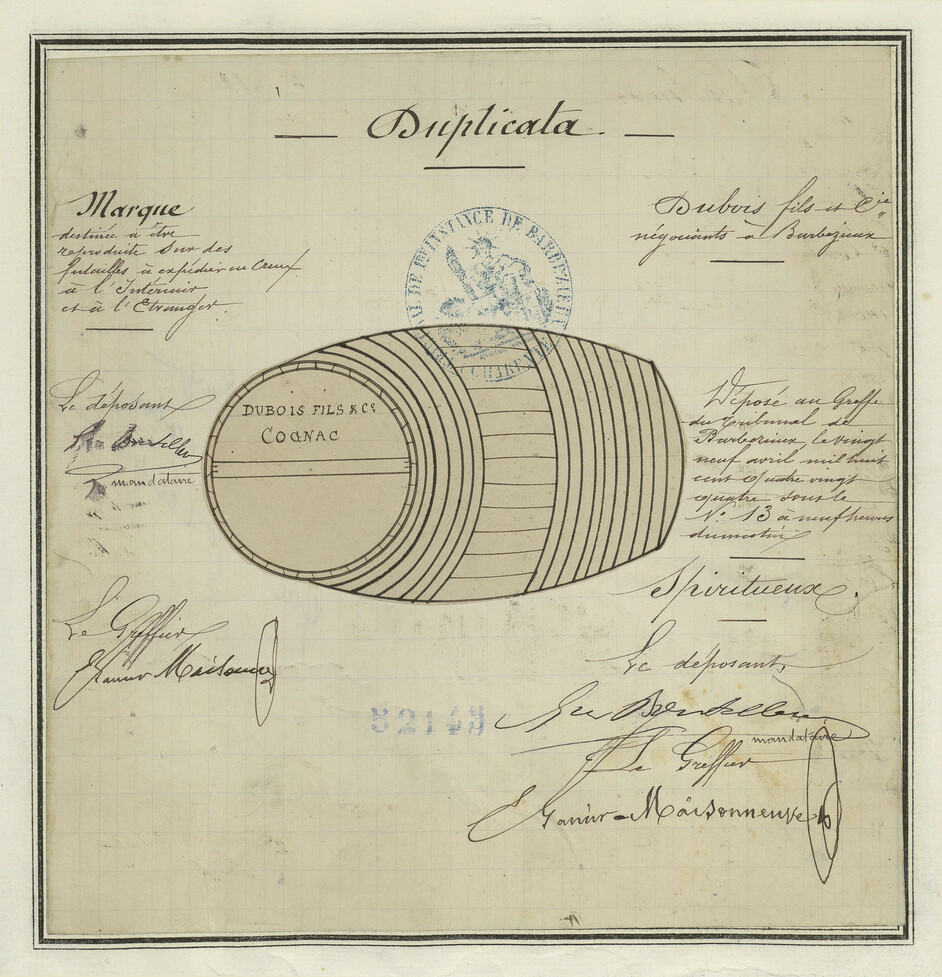 Duplicata.
Marque
destinée à être
reproduite sur des
futailles à expédier en Creux
à l'Intérieur
et à l'Etranger.
Dubois fils et Cie
négociants à Barbezieux
DE 1RE INSTANCE DE BARBEZIEUX
CHARENTE
DUBOIS FILS & Co
COGNAC
Le déposant
mandataire
Le Greffier
Maisonneuve
Déposé au Greffe
du Tribunal de
Barbezieux, le vingt
neuf avril mil huit
cent quatre vingt
quatre sous le
No 13 à neuf heures
du matin
Spiritueux.
Le déposant,
mandataire
Le Greffier
Maisonneuve
52149